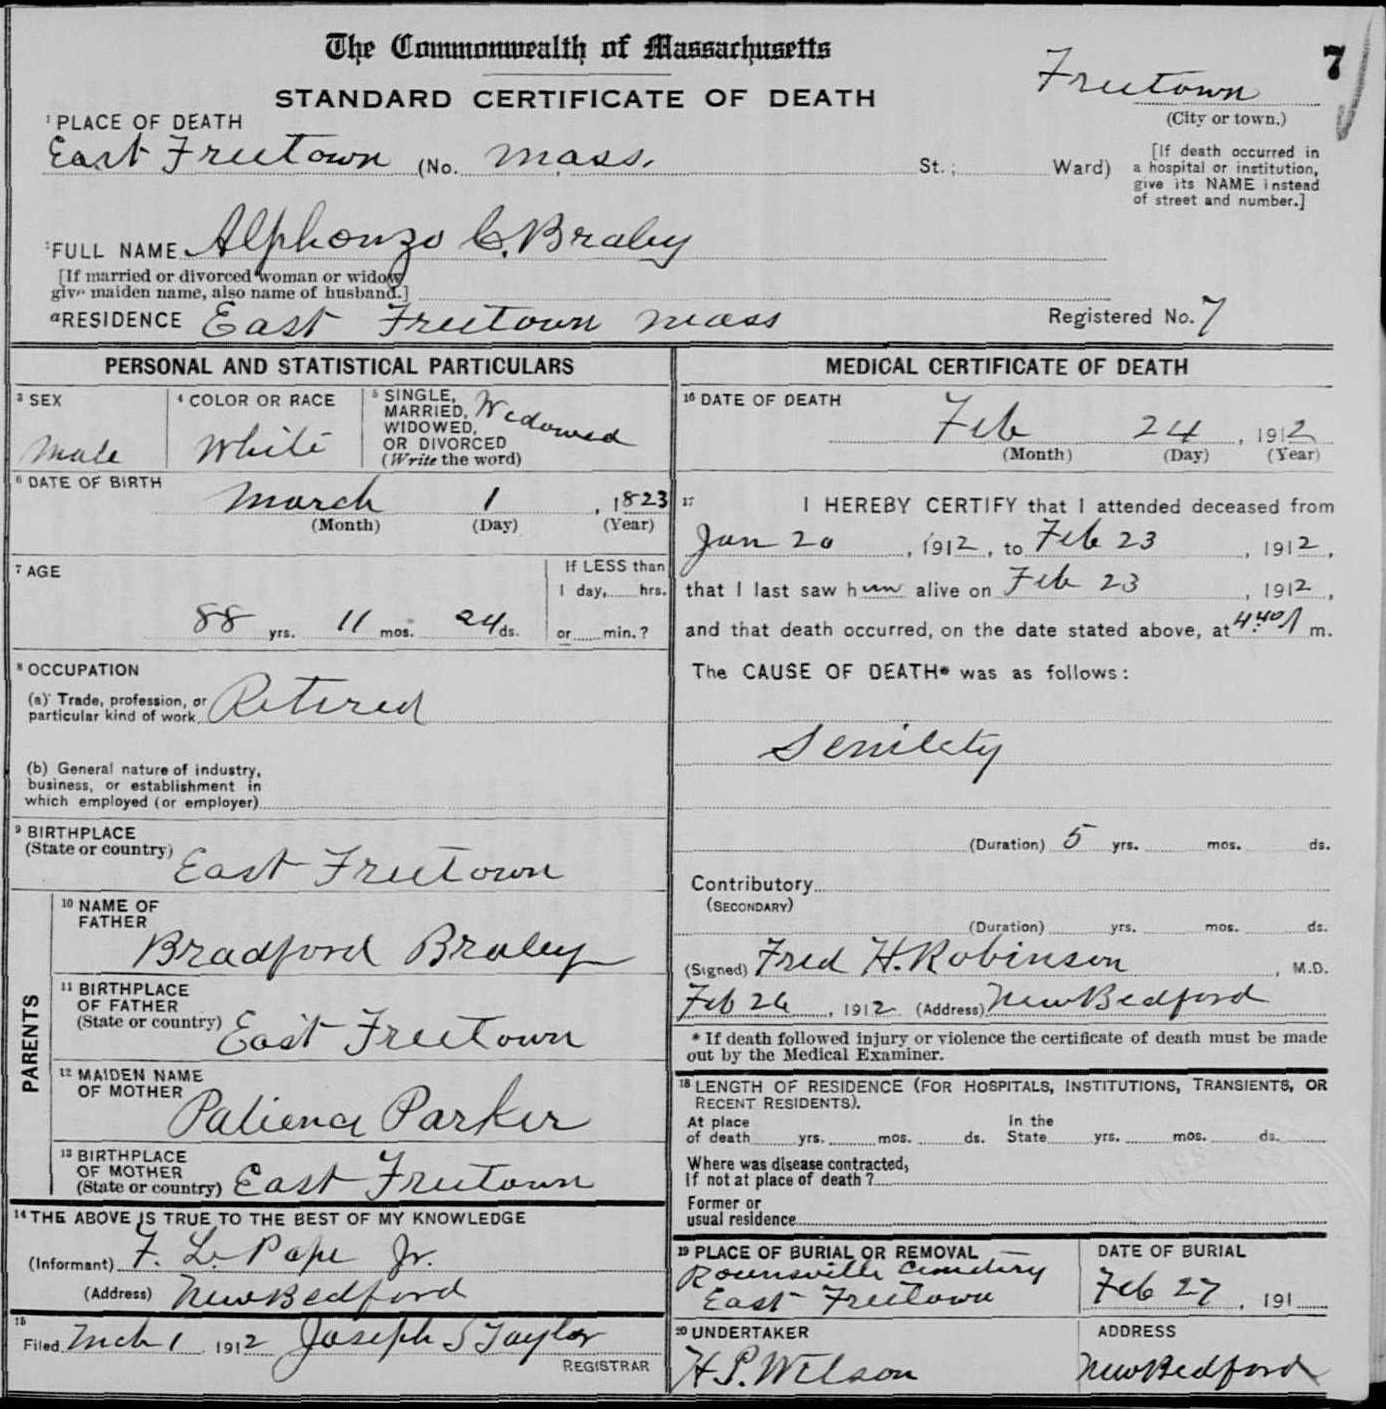 The Commonwealth of Massachusetts
7
STANDARD CERTIFICATE OF DEATH
Freetown
(City or town.)
1 PLACE OF DEATH
East Freetown (No. Mass. St.; Ward)
[If death occurred in
a hospital or institution,
give its NAME instead
of street and number.]
2 FULL NAME Alphonzo C. Braley
[If married or divorced woman or widow
give maiden name, also name of husband.]
a RESIDENCE East Freetown Mass Registered No. 7
PERSONAL AND STATISTICAL PARTICULARS
3 SEX
Male
4 COLOR OR RACE
White
5 SINGLE,
MARRIED,
WIDOWED,
OR DIVORCED
(Write the word)
Widowed
6 DATE OF BIRTH
March 1, 1823
(Month) (Day) (Year)
7 AGE
88 yrs. 11 mos. 24 ds.
If LESS than
1 day, hrs.
or min.?
8 OCCUPATION
(a) Trade, profession, or
particular kind of work Retired
(b) General nature of industry,
business, or establishment in
which employed (or employer)
9 BIRTHPLACE
(State or country) East Freetown
PARENTS
10 NAME OF
FATHER
Bradford Braley
11 BIRTHPLACE
OF FATHER
(State or country) East Freetown
12 MAIDEN NAME
OF MOTHER
Patience Parker
13 BIRTHPLACE
OF MOTHER
(State or country) East Freetown
14 THE ABOVE IS TRUE TO THE BEST OF MY KNOWLEDGE
(Informant) F. L. Pope Jr.
(Address) New Bedford
15
Filed Mch 1 1912 Joseph S Taylor
REGISTRAR
MEDICAL CERTIFICATE OF DEATH
16 DATE OF DEATH
Feb 24, 1912
(Month) (Day) (Year)
17 I HEREBY CERTIFY that I attended deceased from
Jan 20, 1912, to Feb 23, 1912,
that I last saw him alive on Feb 23, 1912,
and that death occurred, on the date stated above, at 4.40 m.
The CAUSE OF DEATH* was as follows:
Senility
(Duration) 5 yrs. mos. ds.
Contributory
(SECONDARY)
(Duration) yrs. mos. ds.
(Signed) Fred H. Robinson, M.D.
Feb 26, 1912 (Address) New Bedford
* If death followed injury or violence the certificate of death must be made
out by the Medical Examiner.
18 LENGTH OF RESIDENCE (FOR HOSPITALS, INSTITUTIONS, TRANSIENTS, OR
RECENT RESIDENTS).
At place
of death yrs. mos. ds.
In the
State yrs. mos. ds.
Where was disease contracted,
If not at place of death?
Former or
usual residence
19 PLACE OF BURIAL OR REMOVAL
Rounsville Cemetery
East Freetown
DATE OF BURIAL
Feb 27, 191
20 UNDERTAKER
H. P. Wilson
ADDRESS
New Bedford